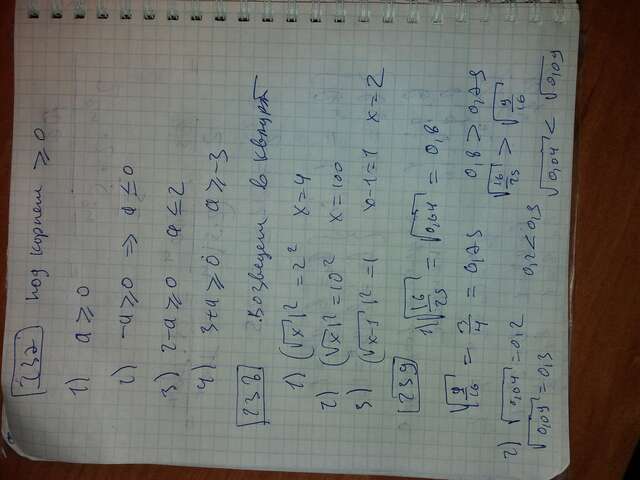 232 под корнем ⩾ 0
1) a ⩾ 0
2) -a ⩾ 0 ⇒ a ≤ 0
3) 2-a ⩾ 0 a ≤ 2
4) 3+a ⩾ 0 a ⩾ -3
238 Возведем в квадрат
1) (√x)² = 2² x=4
2) (√x)² = 10² x=100
3) (√x-1)² = 1 x-1=1 x=2
239
1) √16/25 = √0,64 = 0,8
√9/16 = 3/4 = 0,75 0,8 > 0,75
√16/25 > √9/16
2) √0,04 = 0,2 0,2 < 0,3
√0,09 = 0,3 √0,04 < √0,09